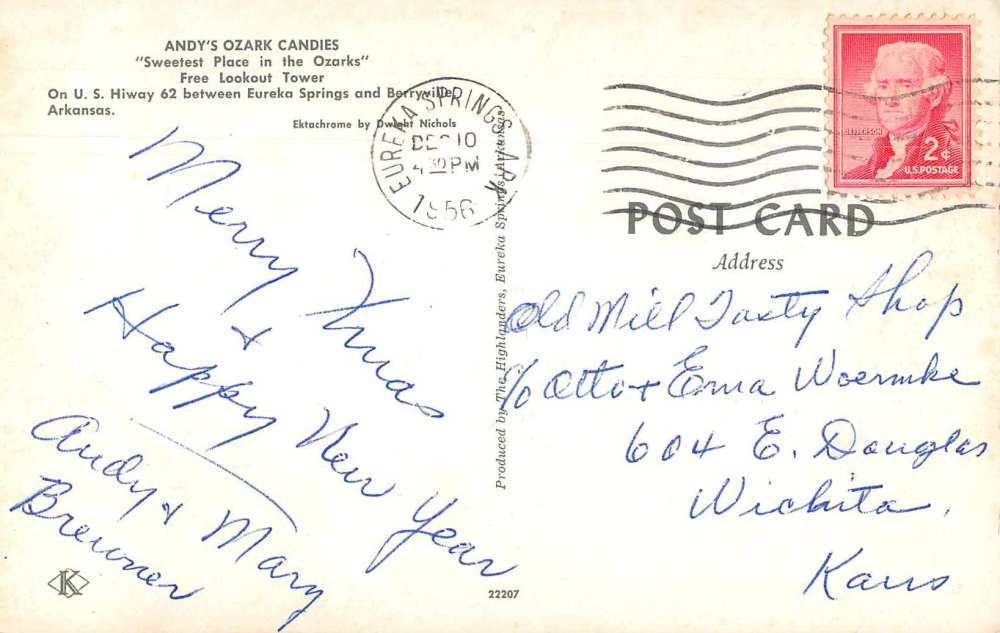 ANDY'S OZARK CANDIES
"Sweetest Place in the Ozarks"
Free Lookout Tower
On U. S. Hiway 62 between Eureka Springs and Berryville,
Arkansas.
Ektachrome by Dwight Nichols
EUREKA SPRINGS ARK
DEC 10
4 30 PM
1956
JEFFERSON
2¢
U.S. POSTAGE
POST CARD
Address
Merry Xmas
+
Happy New Year
Andy + Mary
Produced by The Highlanders, Eureka Springs, Arkansas
Old Mill Tasty Shop
c/o Otto + Erna Woermke
604 E. Douglas
Wichita,
Kans
K
22207